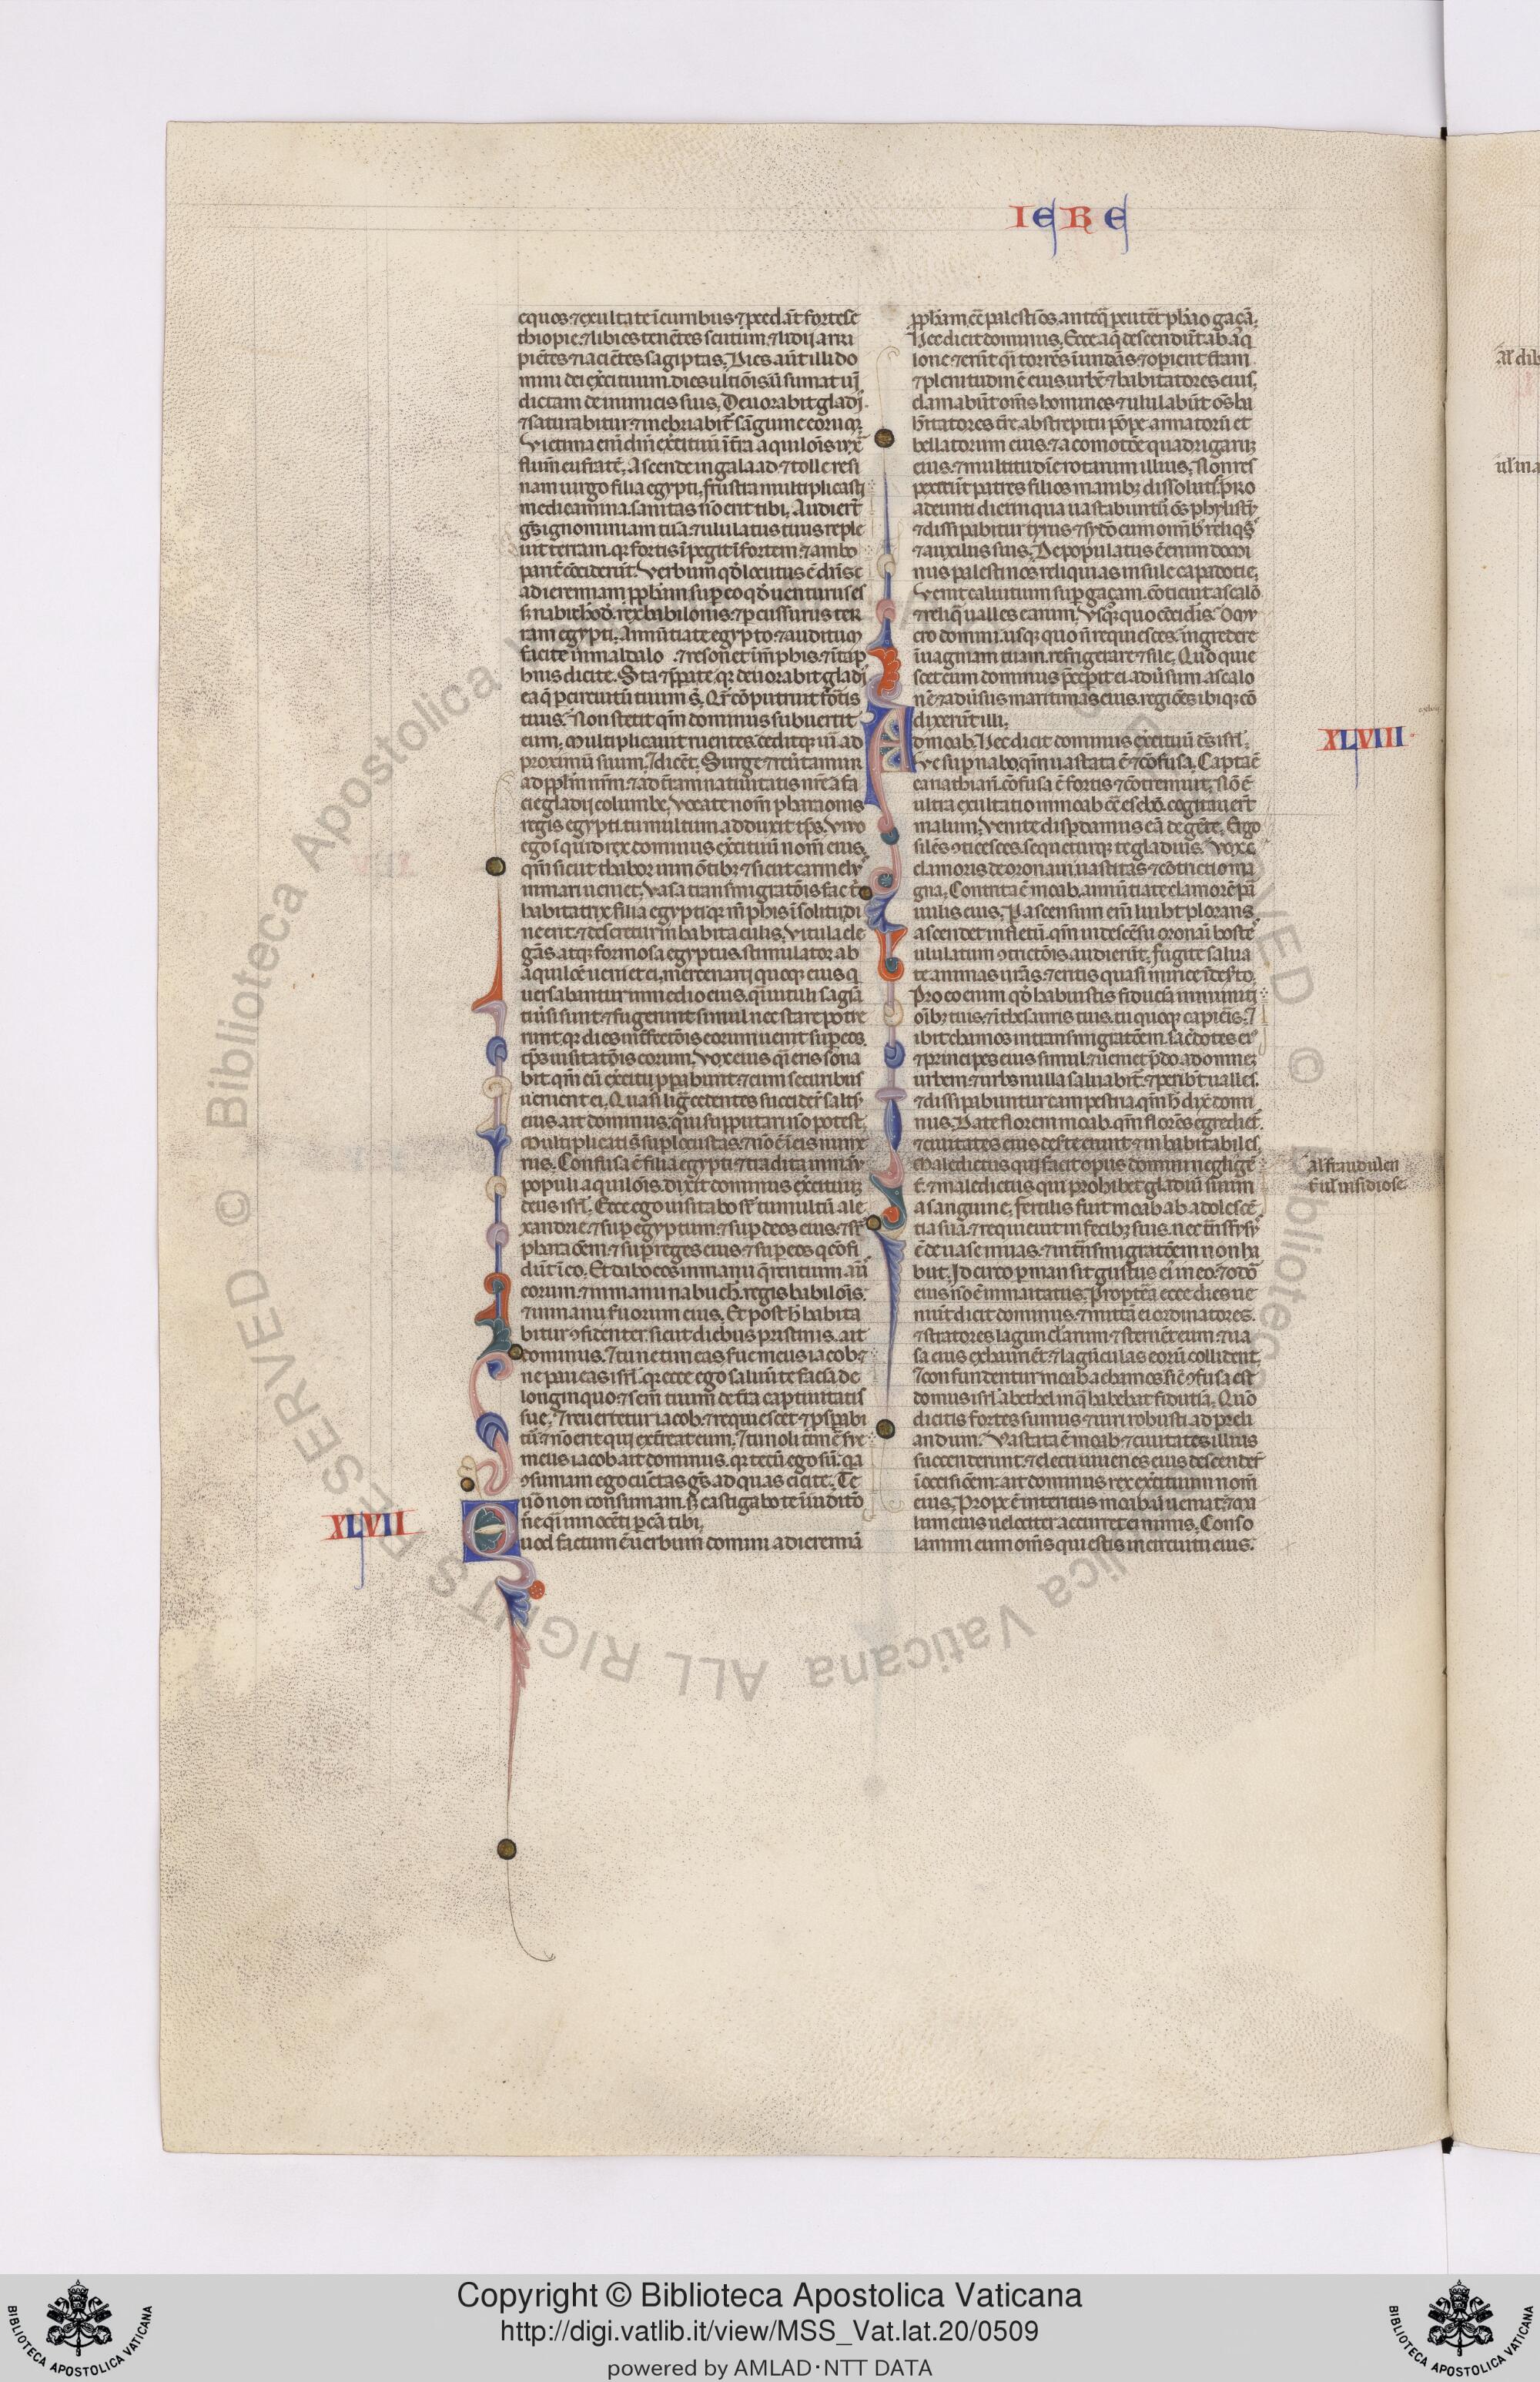 IERE
equos ⁊ exultate ī curribus ⁊ ꝓcedāt fortes e
thiopie ⁊ libies tenētes scutum ⁊ lidij arri
piētes ⁊ iaciētes sagiptas. Dies aūt illi do
mini dei exercituum. dies ultiōis ut sumat uī
dictam de inimicis suis. Deuorabit gladi᷒
⁊ saturabitur ⁊ inebriabit᷑ sāguine eorum.
Victima enī dn̄i exercituū ī tr̄a aquilōis iux̄
flum̄ eufratē. Ascende in galaad ⁊ tolle resi
nam uirgo filia egypti. frustra multiplicasti
medicamina. sanitas nō erit tibi. Audierūt
gētes ignominiam tuā ⁊ ululatus tuus reple
uit terram. qr fortis īpegit ī fortem ⁊ ambo
parit᷑ cōciderūt. Verbum qd̄ locutus ē dn̄s
ad ieremiam ꝓph̄am sup eo qd̄ uenturus es
rex babilonis ⁊ ꝑcussurus ter
ram egypti. Annūtiate egypto ⁊ auditum
facite in magdalo ⁊ resonet
dicite. Sta ⁊ p̄para te. qr deuorabit gladi᷒
ea q̄ ꝑ circuitū tuum st̄. Qr̄ cōputruit fortis
tuus. Non stetit qm̄ dominus subuertit
eum. multiplicauit ruentes ceciditqꝫ uir ad
proximū suum. ⁊ dicēt. Surge ⁊ reuertamur
ad pplm̄ nrm̄ ⁊ ad terram natiuitatis nr̄e a fa
cie gladij columbe. Vocate nom̄ pharaonis
regis egypti. tumultum adduxit tp̄s. Viuo
ego inquid rex dominus exercituū nom̄ eius.
qm̄ sicut thabor in mōtibꝫ ⁊ sicut carmel᷒
in mari ueniet. Vasa transmigratōis fac t᷑
habitatrix filia egypti qr mēphis ī solitudi
ne erit ⁊ deseretur inhabitabilis. Vitula ele
gās atqꝫ formosa egyptus. stimulator ab
aquilone ueniet ei. mercenarij quoqꝫ eius q
uersabantur in medio eius. quasi uituli sagīati
uersi sunt ⁊ fugerunt simul nec stare potue
runt. qr dies interfectōis eorum uenit sup eos.
tp̄s uisitatōis eorum. Vox eius quasi eris sona
bit. qm̄ cū exercitu ꝓpabunt ⁊ cum securibus
uenient ei. Quasi ligna cedentes succiderūt saltū
eius ait dominus. qui supputari nō potest.
Multiplicati st̄ sup locustas. ⁊ nō ē eis nume
rus. Confusa ē filia egypti ⁊ tradita in manu
populi aquilonis. dixit dominus exercituum
deus isrl̄. Ecce ego uisitabo sup tumultū ale
xandrie ⁊ sup egyptum ⁊ sup deos eius ⁊ sup
pharaōem ⁊ sup reges eius ⁊ sup eos q̄ cōfi
dūt ī eo. Et dabo eos in manu q̄rentium aīam
eorum ⁊ in manu nabuch̄. regis babilōis.
⁊ in manu seruorum eius. Et post h̄ habita
bitur ꝯfidenter. sicut diebus pristinis. ait
dominus. ⁊ tu ne timeas serue meus iacob ⁊
ne paueas isrl̄. qr ecce ego saluū te faciā de
longinquo ⁊ semē tuum de terra captiuitatis
sue. ⁊ reuertetur iacob ⁊ requiescet ⁊ ꝓsperabi
tur ⁊ nō erit qui exterreat eum. ⁊ tu noli timere serue
meus iacob ait dominus. qr tecū ego sū. qa
ꝯsumam ego cūctas gētes ad quas eieci te. Te
uō non consumam. sꝫ castigabo te ī iuditio
nec quasi innocenti parcā tibi.
XLVII
Quod factum ē uerbum domini ad ieremiā
ꝓph̄am. cōtra palestinos. anteq̄ ꝑcuteret pharao gaçā.
Hec dicit dominus. Ecce aq̄ descendūt ab aq̄
lone ⁊ erūt quasi torrens inundās ⁊ operient terram
⁊ plenitudinē eius. urbē ⁊ habitatores eius.
clamabūt om̄s homines ⁊ ululabūt om̄s ha
bitatores terre. ab strepitu pompe armatorū et
bellatorum eius. ⁊ a comotōe quadrigarum
eius. ⁊ multitudine rotarum illius. Non res
pexerūt patres filios manibꝫ dissolutis. pro
aduentu diei in qua uastabuntur om̄s phylistei
⁊ dissipabitur tyrus ⁊ sydō cum omnibꝫ reliquis
⁊ auxiliis suis. Depopulatus ē enim domi
nus palestinos reliquias insule capadocie.
Venit caluitium sup gaçam. cōticuit ascalō
⁊ reliquie uallis earum. Usqꝫ quo cōcidis. O mu
cro domini. usqꝫ quo nō requiesces. ingredere
in uaginam tuam. refrigerare ⁊ sile. Quō quie
scet cum dominus p̄cepit ei aduersum ascalo
nē ⁊ aduersus maritimas eius regiōes ibiqꝫ cō
dixerūt illi.
XLVIII
Ad moab. Hec dicit dominus exercituū deus isrl̄.
Ve sup nabo. qm̄ uastata ē ⁊ cōfusa. Capta ē
cariathiarī. cōfusa ē fortis ⁊ cōtremuit. Nō ē
ultra exultatio in moab cōtra esebō. cogitauerūt
malum. Venite disperdamus eā de gente. Ergo
silēs ꝯticesces. sequeturqꝫ te gladius. Vox
clamoris de oronaim. uastitas ⁊ cōtrictio ma
gna. Contrita ē moab. annūtiate clamorē par
uulis eius. Per ascensum enī luith plorans
ascendet in fletū. qm̄ in descensu oronaim hostes
ululatum ꝯtrictōis audierūt. fugite salua
te animas urās ⁊ eritis quasi mirice ī deserto.
Pro eo enim qd̄ habuistis fiduciā in munitio
nibꝫ tuis ⁊ ī thesauris tuis. tu quoqꝫ capieris. ⁊
ibit chamos in transmigratōem. sacerdotes ei᷒
⁊ principes eius simul. ⁊ ueniet p̄do ad omnem
urbem ⁊ urbs nulla saluabitur. ⁊ peribūt ualles.
⁊ dissipabuntur campestria. qm̄ h̄ dixit domi
nus. Date florem moab. qm̄ florēs egrediet᷑.
⁊ ciuitates eius deserte erunt ⁊ inhabitabiles.
Maledictus qui facit opus domini neglige
t᷑. ⁊ maledictus qui prohibet gladiū suum
a sanguine. fertilis fuit moab ab adolescē
tia sua ⁊ requieuit in fecibꝫ suis. nec transfusus
ē de uase in uas. ⁊ in transmigratōem non ha
biit. Idcirco permansit gustus eius in eo. ⁊ odor
eius nō ē immutatus. Propterea ecce dies ue
niūt dicit dominus. ⁊ mittam ei ordinatores
⁊ stratores laguncularum ⁊ sternēt eum. ⁊ ua
sa eius exhaurient. ⁊ lagūculas eorū collident.
⁊ confundentur moab a chamos. sicut ꝯfusa est
domus isrl̄ a bethel in q̄ habebat fidutiā. Quō
dicitis fortes sumus ⁊ uiri robusti ad preli
andum. Vastata ē moab ⁊ ciuitates illius
succenderunt. ⁊ electi iuuenes eius descender᷑t
ī occisiōem. ait dominus rex exercituum nom̄
eius. Prope ē interitus moab ut ueniat. ⁊ ma
lum eius uelociter accurret. ei nimis. Conso
lamini eum om̄s qui estis in circuitu eius.
al̄ fraudulen
t᷑ ul̄ insidiose
Copyright © Biblioteca Apostolica Vaticana
http://digi.vatlib.it/view/MSS_Vat.lat.20/0509
powered by AMLAD·NTT DATA
BIBLIOTECA APOSTOLICA VATICANA
BIBLIOTECA APOSTOLICA VATICANA
© Biblioteca Apostolica Vaticana ALL RIGHTS RESERVED